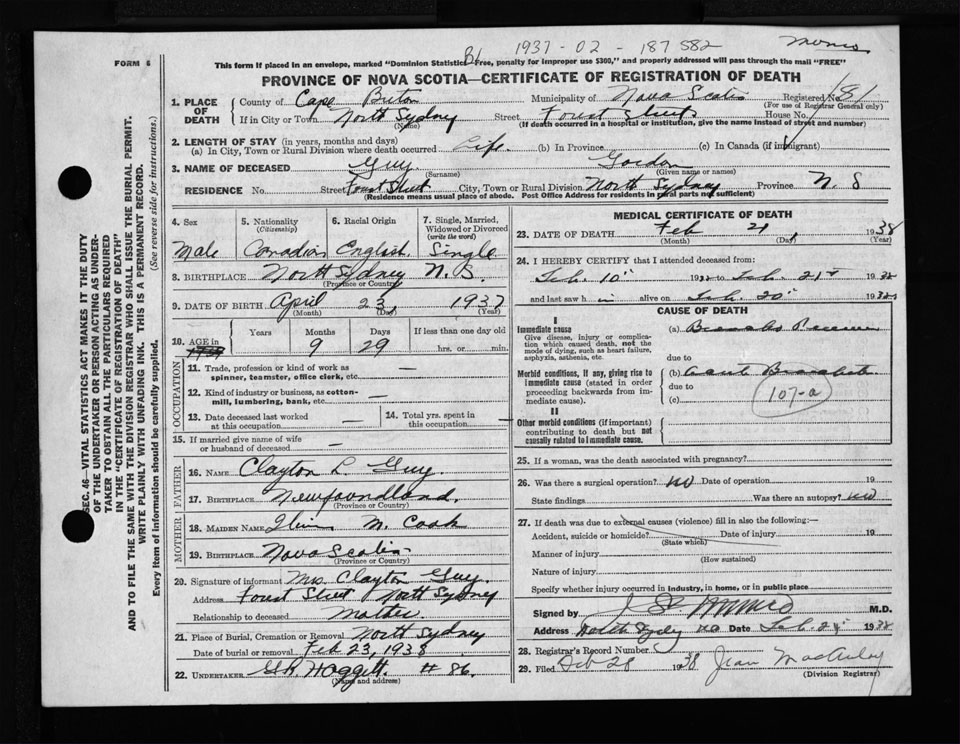 1937 - 02 - 187582
FORM 6
This form if placed in an envelope, marked "Dominion Statistics Free, penalty for improper use $300," and properly addressed will pass through the mail "FREE"
PROVINCE OF NOVA SCOTIA—CERTIFICATE OF REGISTRATION OF DEATH
SEC. 46—VITAL STATISTICS ACT MAKES IT THE DUTY
OF THE UNDERTAKER OR PERSON ACTING AS UNDER-
TAKER TO OBTAIN ALL THE PARTICULARS REQUIRED
IN THE "CERTIFICATE OF REGISTRATION OF DEATH"
AND TO FILE THE SAME WITH THE DIVISION REGISTRAR WHO SHALL ISSUE THE BURIAL PERMIT.
WRITE PLAINLY WITH UNFADING INK. THIS IS A PERMANENT RECORD.
Every item of Information should be carefully supplied. (See reverse side for instructions.)
1. PLACE OF DEATH County of Cape Breton Municipality of Nova Scotia Registered No. 181
(For use of Registrar General only)
If in City or Town North Sydney Street Forest Street House No.
(Name) (If death occurred in a hospital or institution, give the name instead of street and number)
2. LENGTH OF STAY (in years, months and days)
(a) In City, Town or Rural Division where death occurred Life. (b) In Province (c) In Canada (if immigrant)
3. NAME OF DECEASED Guy Gordon
(Surname) (Given name or names)
RESIDENCE No. Street Forest Street City, Town or Rural Division North Sydney Province N. S
(Residence means usual place of abode. Post Office Address for residents in rural parts not sufficient)
4. Sex 5. Nationality (Citizenship) 6. Racial Origin 7. Single, Married, Widowed or Divorced (write the word)
Male Canadian English Single
8. BIRTHPLACE North Sydney N. S.
(Province or Country)
9. DATE OF BIRTH April 23, 1937
(Month) (Day) (Year)
10. AGE in Years Months Days If less than one day old
9 29 hrs. or min.
OCCUPATION
11. Trade, profession or kind of work as spinner, teamster, office clerk, etc. —
12. Kind of industry or business, as cotton-mill, lumbering, bank, etc. —
13. Date deceased last worked at this occupation — 14. Total yrs. spent in this occupation —
15. If married give name of wife or husband of deceased —
FATHER
16. NAME Clayton L. Guy.
17. BIRTHPLACE Newfoundland.
(Province or Country)
MOTHER
18. MAIDEN NAME M. Cook
19. BIRTHPLACE Nova Scotia
(Province or Country)
20. Signature of informant Mrs. Clayton Guy.
Address Forest Street North Sydney
Relationship to deceased Mother.
21. Place of Burial, Cremation or Removal North Sydney
Date of burial or removal Feb 23, 1938
22. UNDERTAKER Hoggett #86.
(Name and address)
MEDICAL CERTIFICATE OF DEATH
23. DATE OF DEATH Feb 21, 1938
(Month) (Day) (Year)
24. I HEREBY CERTIFY that I attended deceased from:
Feb. 10 1938 to Feb. 21st 1938
and last saw h im alive on Feb. 20 1938
CAUSE OF DEATH
I
Immediate cause (a) Broncho
Give disease, injury or complication which caused death, not the mode of dying, such as heart failure, asphyxia, asthenia, etc.
due to
Morbid conditions, if any, giving rise to immediate cause (stated in order proceeding backwards from immediate cause). (b) acute Bronchitis
due to
(c)
107-a
II
Other morbid conditions (if important) contributing to death but not causally related to immediate cause.
25. If a woman, was the death associated with pregnancy?
26. Was there a surgical operation? no Date of operation 19
State findings Was there an autopsy? no
27. If death was due to external causes (violence) fill in also the following:—
Accident, suicide or homicide? Date of injury 19
(State which)
Manner of injury
(How sustained)
Nature of injury
Specify whether injury occurred in industry, in home, or in public place
Signed by Munro M.D.
Address North Sydney Date Feb. 24 1938
28. Registrar's Record Number
29. Filed Feb 28 1938 Jean
(Division Registrar)